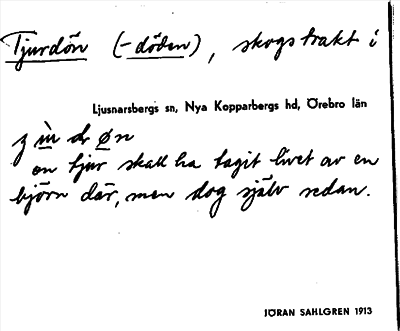 Tjurdön (-döden), skogstrakt i
Ljusnarsbergs sn, Nya Kopparbergs hd, Örebro län
en tjur skall ha tagit livet av en
björn där, men dog själv sedan.
JÖRAN SAHLGREN 1913